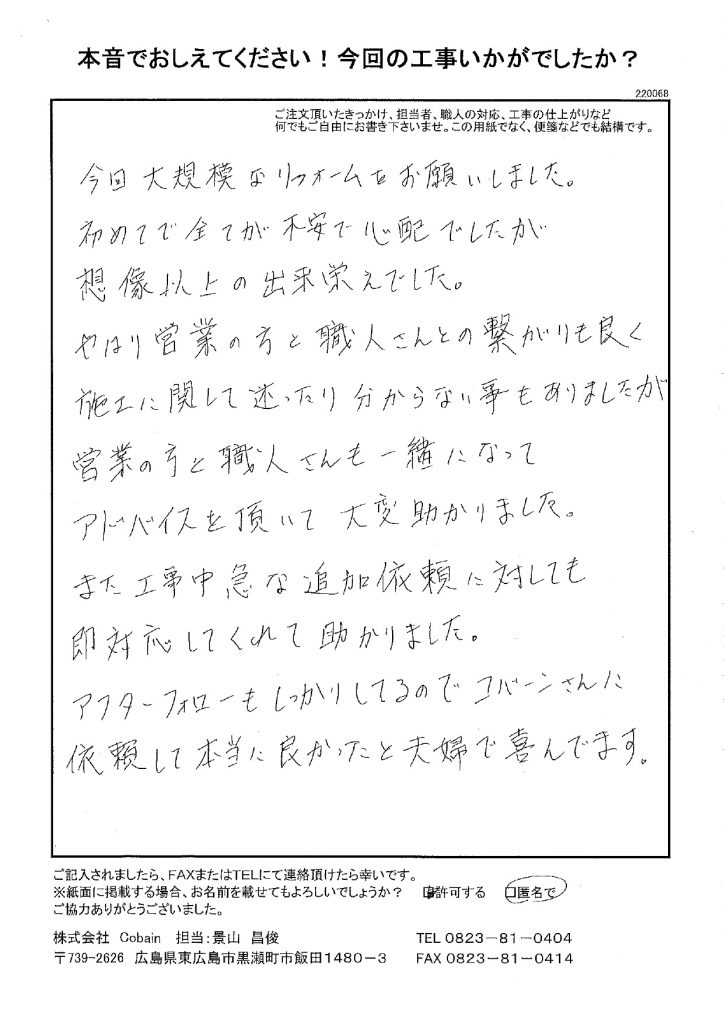 本音でおしえてください！今回の工事いかがでしたか？
220068
ご注文頂いたきっかけ、担当者、職人の対応、工事の仕上がりなど
何でもご自由にお書き下さいませ。この用紙でなく、便箋などでも結構です。
今回大規模なリフォームをお願いしました。
初めてで全てが不安で心配でしたが
想像以上の出来栄えでした。
やはり営業の方と職人さんとの繋がりも良く
施工に関して迷ったり分からない事もありましたが
営業の方と職人さんも一緒になって
アドバイスを頂いて大変助かりました。
また工事中急な追加依頼に対しても
即対応してくれて助かりました。
アフターフォローもしっかりしてるのでコバーンさんに
依頼して本当に良かったと夫婦で喜んでます。
ご記入されましたら、FAXまたはTELにて連絡頂けたら幸いです。
※紙面に掲載する場合、お名前を載せてもよろしいでしょうか？ □許可する □匿名で
ご協力ありがとうございました。
株式会社 Cobain 担当：景山 昌俊 TEL 0823－81－0404
〒739－2626 広島県東広島市黒瀬町市飯田1480－3 FAX 0823－81－0414